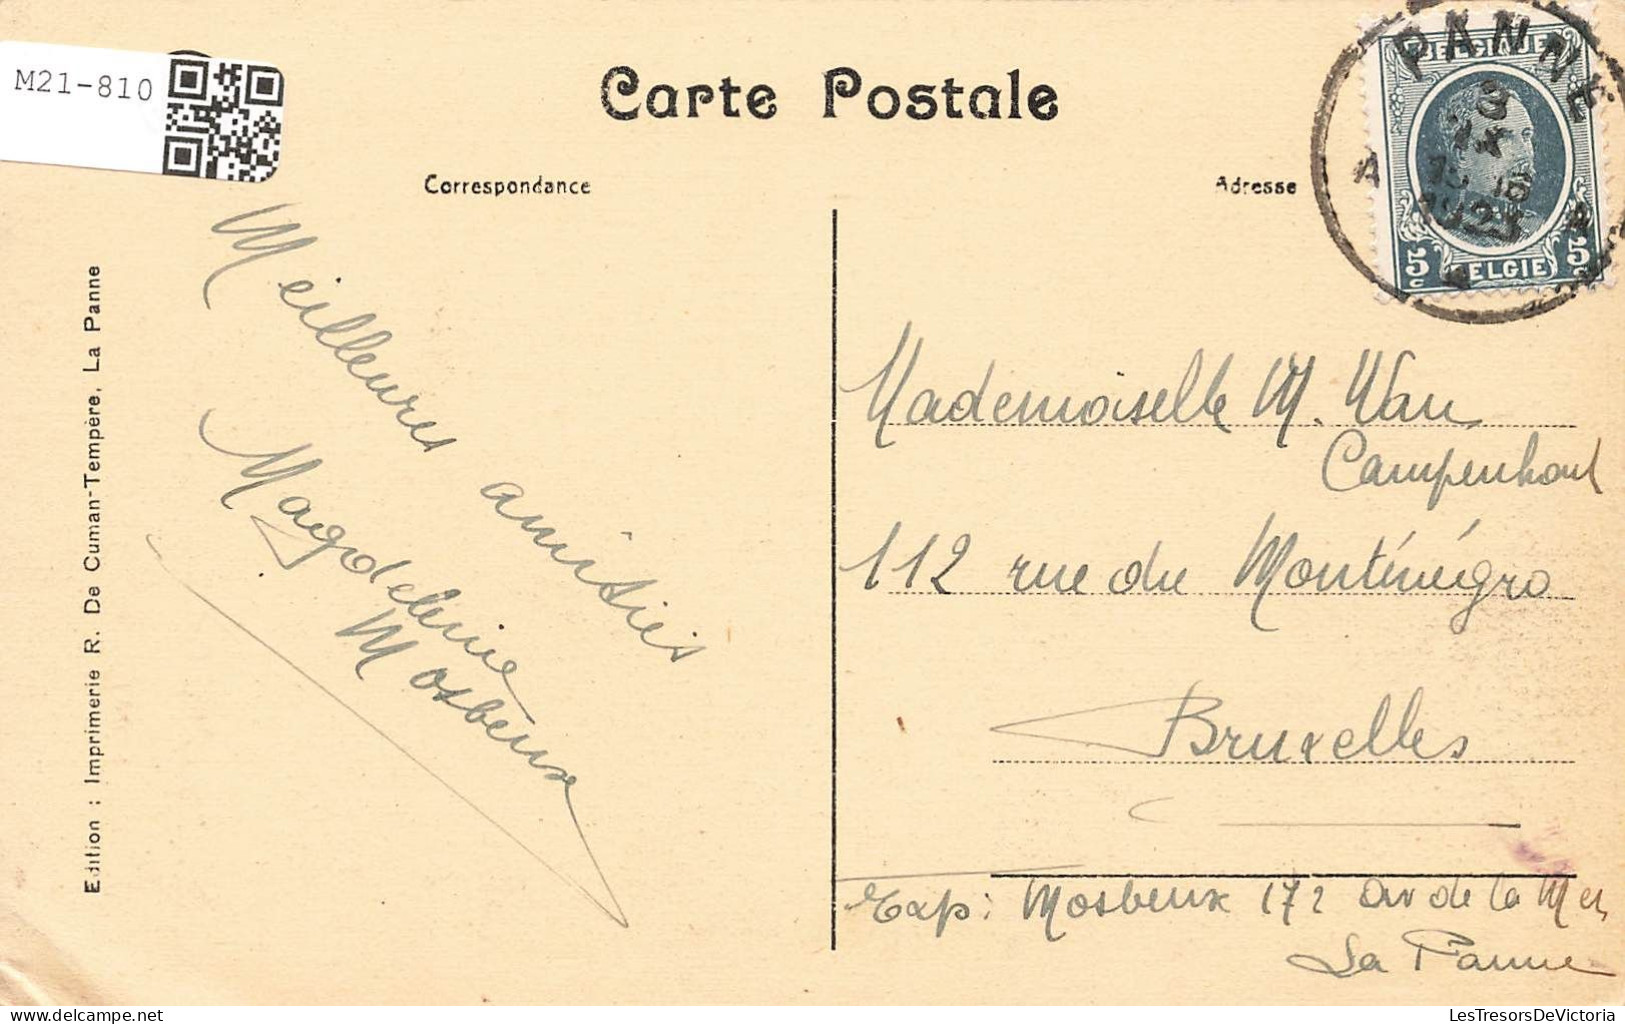 M21-810
Carte Postale
Correspondance
Adresse
PANNE
BELGIQUE
5c BELGIE 5c
Edition : Imprimerie R. De Cuman-Tempère, La Panne
Meilleures amitiés
Magdeleine
Mosbeux
Mademoiselle M. Van
Campenhout
112 rue du Monténégro
Bruxelles
Exp: Mosbeux 172 Av de la Mer
La Panne
LesTresorsDeVictoria